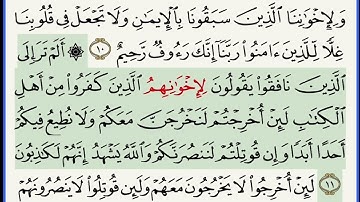 وَلِإِخْوَٰنِنَا ٱلَّذِينَ سَبَقُونَا بِٱلْإِيمَٰنِ وَلَا تَجْعَلْ فِى قُلُوبِنَا
غِلًّا لِّلَّذِينَ ءَامَنُوا۟ رَبَّنَآ إِنَّكَ رَءُوفٌ رَّحِيمٌ ١٠ ۞ أَلَمْ تَرَ إِلَى
ٱلَّذِينَ نَافَقُوا۟ يَقُولُونَ لِإِخْوَٰنِهِمُ ٱلَّذِينَ كَفَرُوا۟ مِنْ أَهْلِ
ٱلْكِتَٰبِ لَئِنْ أُخْرِجْتُمْ لَنَخْرُجَنَّ مَعَكُمْ وَلَا نُطِيعُ فِيكُمْ
أَحَدًا أَبَدًا وَإِن قُوتِلْتُمْ لَنَنصُرَنَّكُمْ وَٱللَّهُ يَشْهَدُ إِنَّهُمْ لَكَٰذِبُونَ
١١ لَئِنْ أُخْرِجُوا۟ لَا يَخْرُجُونَ مَعَهُمْ وَلَئِن قُوتِلُوا۟ لَا يَنصُرُونَهُمْ